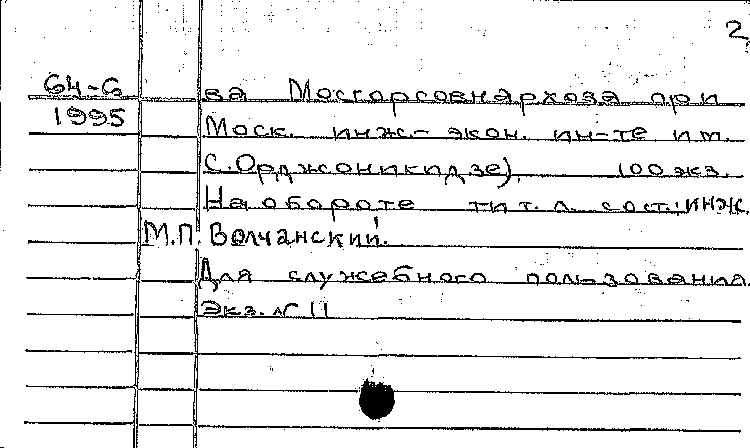 2
64-6 ва Мосгорсовнархоза при
1995 Моск. инж.-экон. ин-те им.
С.Орджоникидзе), 100 экз.
На обороте тит. л. сост.: инж.
М.П. Волчанский.
Для служебного пользования.
Экз. № 11